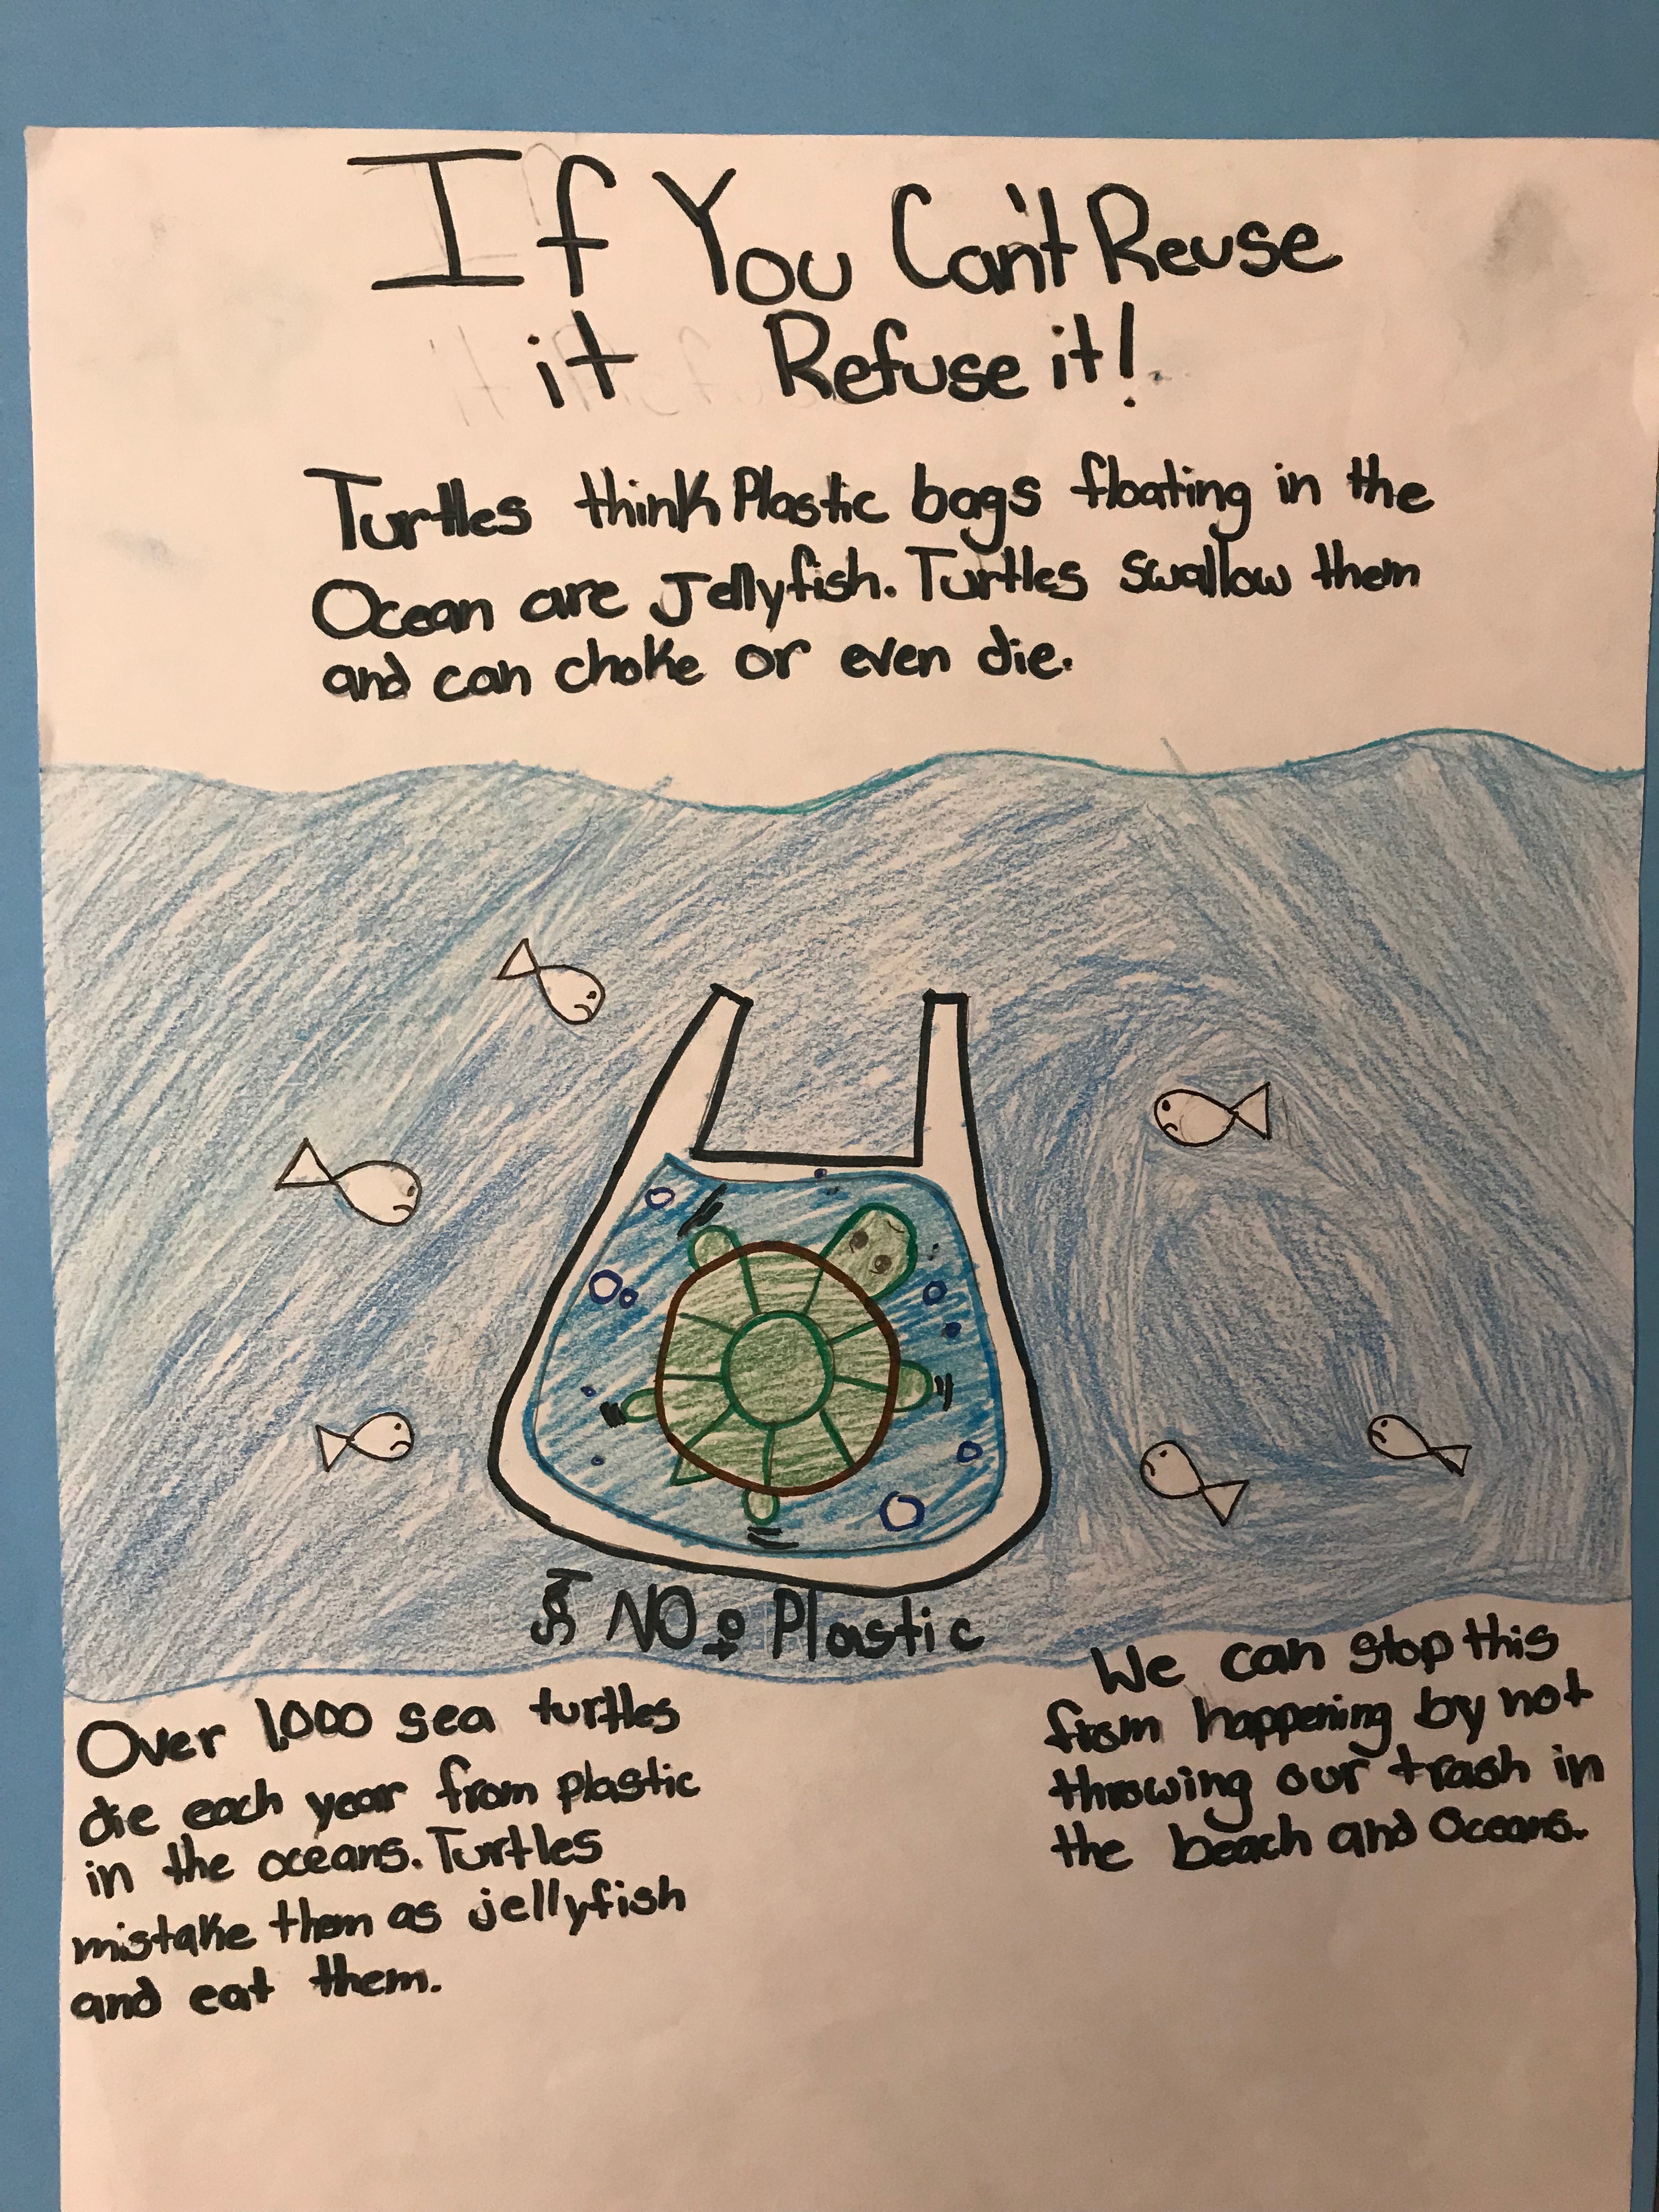 If You Can't Reuse
it Refuse it!
Turtles think Plastic bags floating in the
Ocean are Jellyfish. Turtles swallow them
and can choke or even die.
Say NO to Plastic
Over 1,000 sea turtles
die each year from plastic
in the oceans. Turtles
mistake them as jellyfish
and eat them.
We can stop this
from happening by not
throwing our trash in
the beach and Oceans.